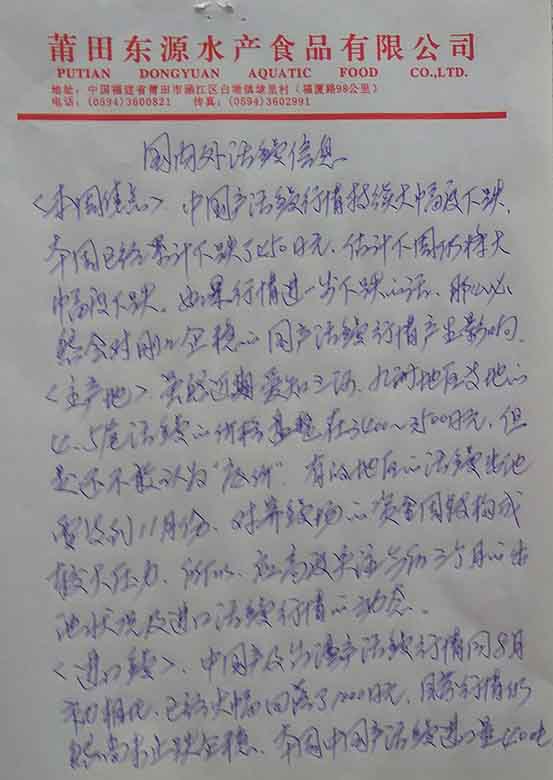 莆田东源水产食品有限公司
PUTIAN DONGYUAN AQUATIC FOOD CO.,LTD.
地址：中国福建省莆田市涵江区白塘镇埭里村（福厦路98公里）
电话：(0594)3600821 传真：(0594)3602991
国内外活鳗信息
<本周焦点> 中国产活鳗行情持续大幅度下跌，
本周已经累计下跌了450日元，估计下周仍将大
幅度下跌。如果行情进一步下跌的话，那么必
然会对刚刚企稳的国产活鳗行情产生影响。
<主产地> 虽然近期爱知三河、九州地区等地的
4、5尾活鳗的价格在3400～3500日元，但
是还不敢认为“底价”。有的地区的活鳗出池
要后到11月份，对养鳗场的资金周转构成
较大压力，所以，应高度关注今后三个月的出
池状况及进口活鳗行情的动态。
<进口鳗>、中国产及台湾产活鳗行情同8月
初相比，已经大幅回落了1000日元，目前行情仍
然尚未止跌企稳、本周中国产活鳗进口量400吨